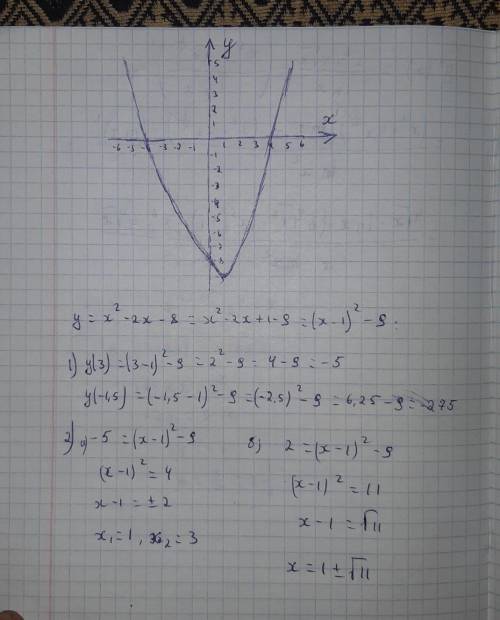 y
5
4
3
2
1
x
-6 -5 -4 -3 -2 -1 1 2 3 4 5 6
-1
-2
-3
-4
-5
-6
-7
-8
y = x² - 2x - 8 = x² - 2x + 1 - 9 = (x - 1)² - 9.
1) y(3) = (3-1)² - 9 = 2² - 9 = 4 - 9 = -5
y(-1,5) = (-1,5 - 1)² - 9 = (-2,5)² - 9 = 6,25 - 9 = -2,75
2) a) -5 = (x - 1)² - 9
(x - 1)² = 4
x - 1 = ± 2
x₁ = 1, x₂ = 3
в) 2 = (x - 1)² - 9
(x - 1)² = 11
x - 1 = √11
x = 1 ± √11